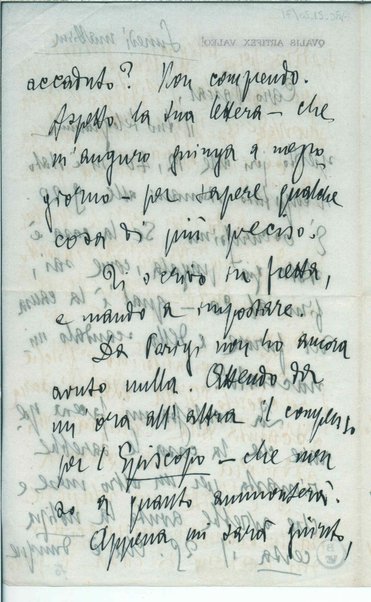 accaduto? Non comprendo.
Aspetto la sua lettera — che
m'auguro giunga a mezzo
giorno — per sapere qualche
cosa di più preciso.
Le scrivo in fretta,
e mando a impostare.
Da Parigi non ho ancora
avuto nulla. Attendo da
un'ora all'altra il compenso
per l'Episcopo — che non
so a quanto ammonterà.
Appena mi sarà giunto,